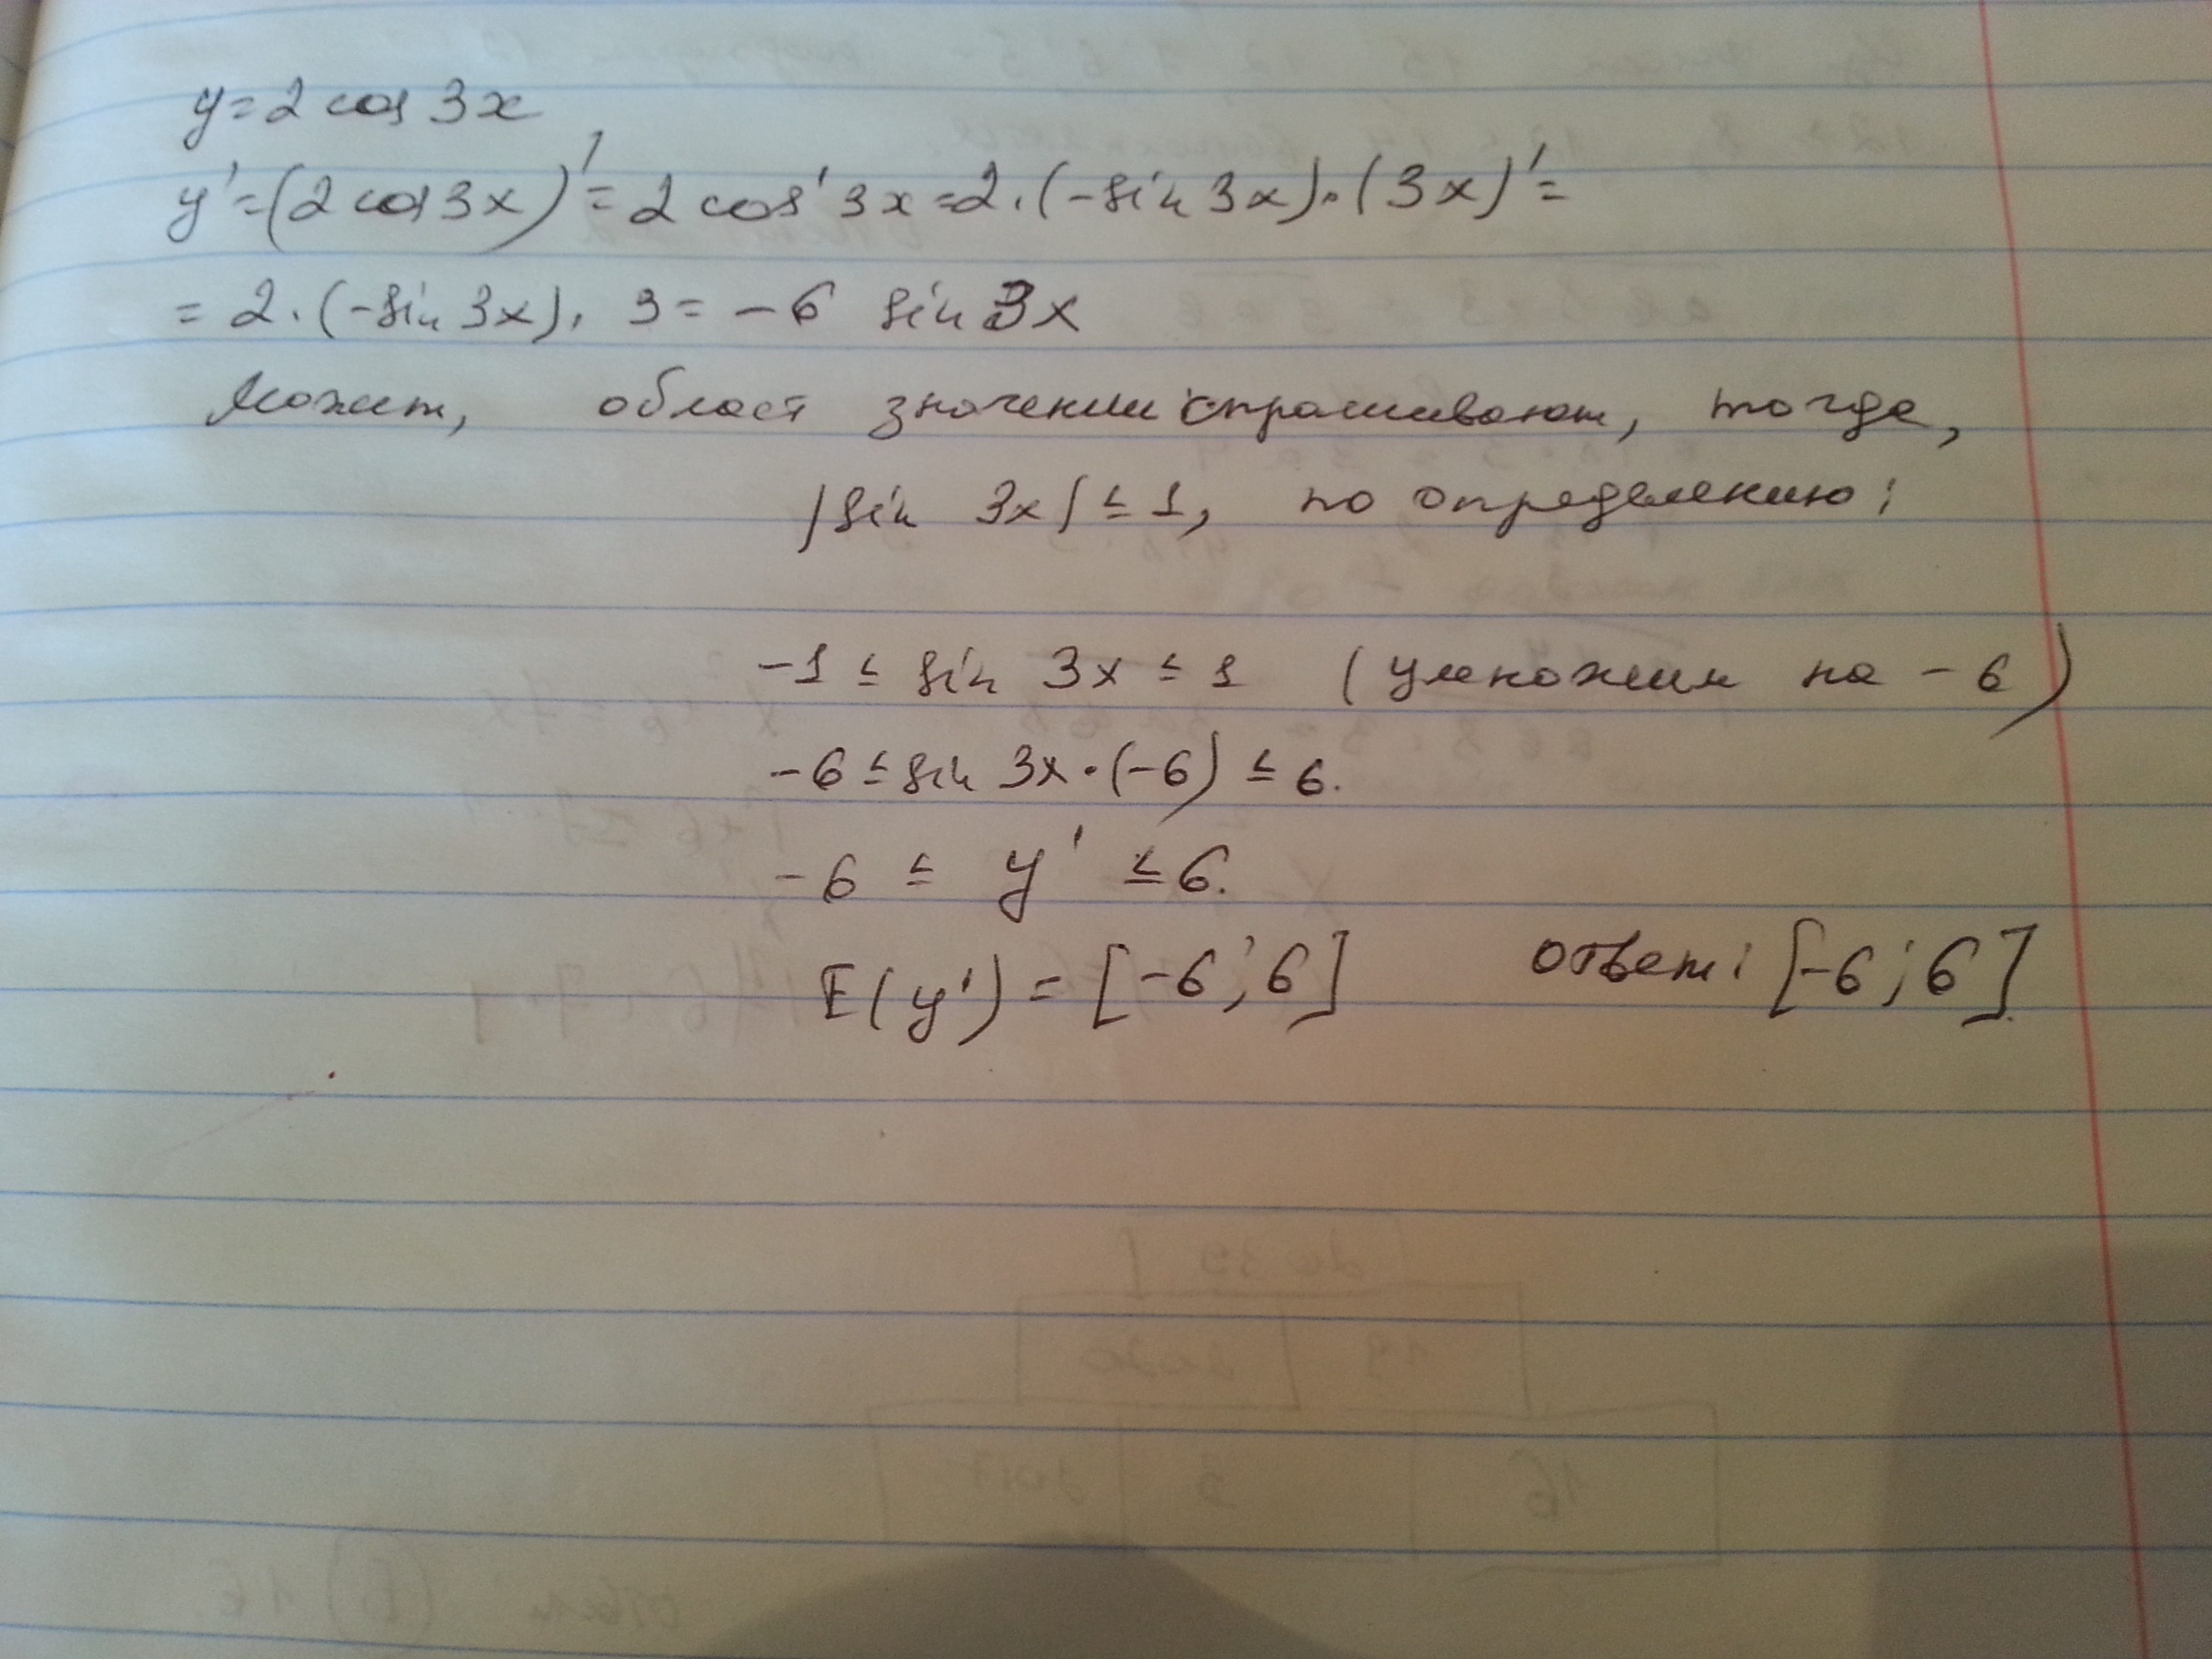 y = 2 cos 3x
y' = (2 cos 3x)' = 2 cos' 3x = 2 · (-sin 3x) · (3x)' =
= 2 · (-sin 3x) · 3 = -6 sin 3x
Может, област значении спрашивают, тогда,
|sin 3x| ≤ 1, по определению:
-1 ≤ sin 3x ≤ 1 (умножим на -6)
-6 ≤ sin 3x · (-6) ≤ 6.
-6 ≤ y' ≤ 6.
E(y') = [-6; 6] Ответ: [-6; 6]